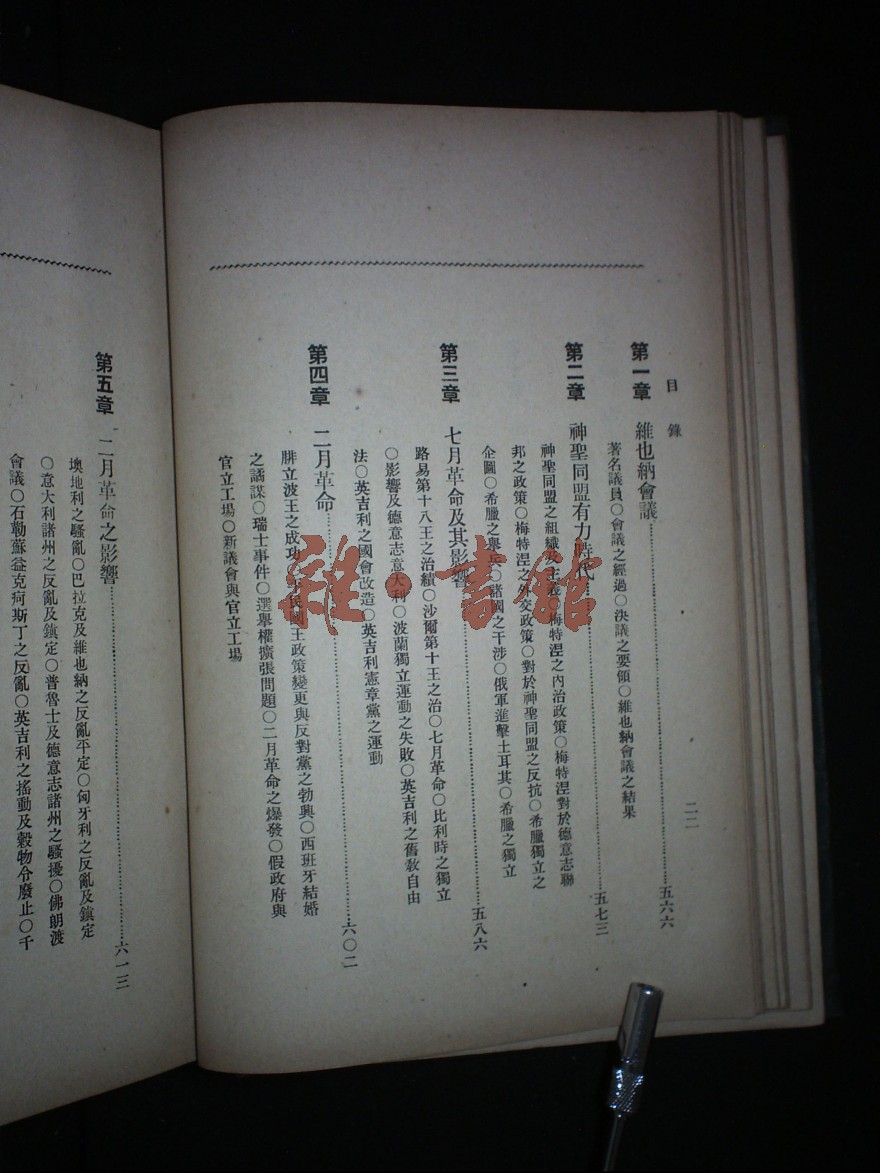 目錄
二二
第一章 維也納會議……五六六
著名議員〇會議之經過〇決議之要領〇維也納會議之結果
第二章 神聖同盟有力時代……五七三
神聖同盟之組織及主義〇梅特涅之內治政策〇梅特涅對於德意志聯
邦之政策〇梅特涅之外交政策〇對於神聖同盟之反抗〇希臘獨立之
企圖〇希臘之舉兵〇諸國之干涉〇俄軍進擊土耳其〇希臘之獨立
第三章 七月革命及其影響……五八六
路易第十八王之治績〇沙爾第十王之治〇七月革命〇比利時之獨立
〇影響及德意志意大利〇波蘭獨立運動之失敗〇英吉利之舊教自由
法〇英吉利之國會改造〇英吉利憲章黨之運動
第四章 二月革命……六〇二
腓立波王之成功〇民國王政策變更與反對黨之勃興〇西班牙結婚
之譎謀〇瑞士事件〇選舉權擴張問題〇二月革命之爆發〇假政府與
官立工場〇新議會與官立工場
第五章 二月革命之影響……六一三
墺地利之騷亂〇巴拉克及維也納之反亂平定〇匈牙利之反亂及鎮定
〇意大利諸州之反亂及鎮定〇普魯士及德意志諸州之騷擾〇佛朗渡
會議〇石勒蘇益克荷斯丁之反亂〇英吉利之搖動及穀物令廢止〇千
雜·書館